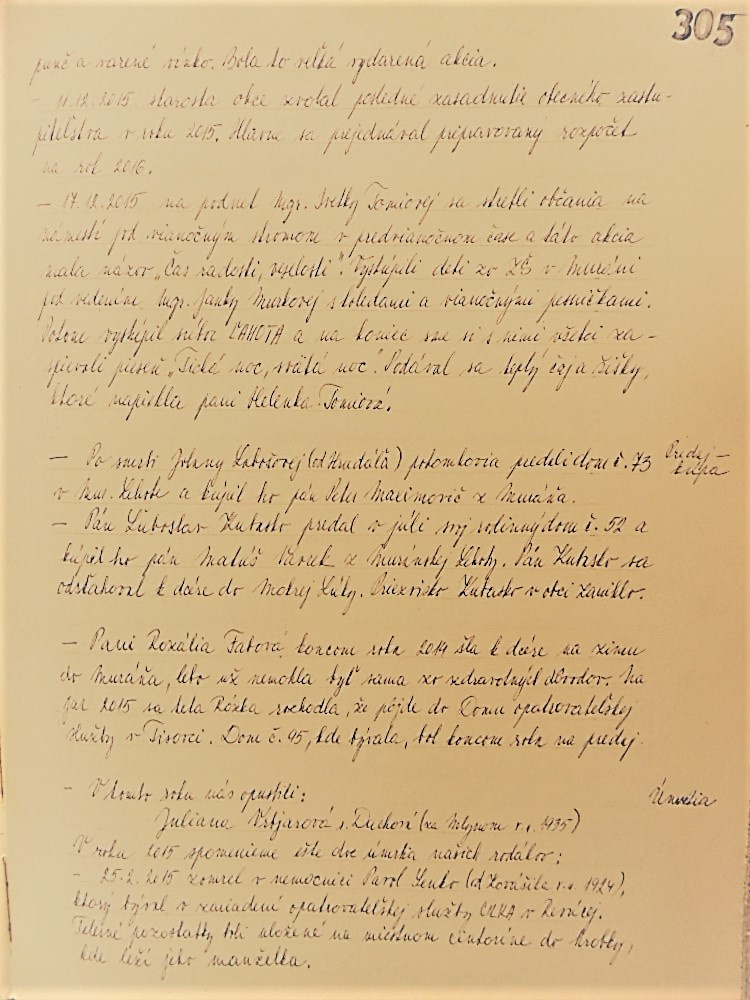 305
punč a varené vínko. Bola to veľká vydarená akcia.
- 11.12.2015 starosta obce zvolal posledné zasadnutie obecného zastu-
piteľstva v roku 2015. Hlavne sa prejednával pripravovaný rozpočet
na rok 2016.
- 17.12.2015 na podnet Mgr. Ivetky Tomicovej sa stretli občania na
námestí pod vianočným stromom v predvianočnom čase a táto akcia
mala názov „Čas radosti, veselosti“. Vystúpili deti zo ZŠ v Muráni
pod vedením Mgr. Janky Murkovej s koledami a vianočnými pesničkami.
Potom vystúpil súbor LAHOTA a na koniec sme si s nimi všetci za-
spievali pieseň „Tichá noc, svätá noc“. Podával sa teplý čaj a šišky,
ktoré napiekla pani Helenka Tomicová.
- Po smrti Jolany Lubošovej (od Hrudáľa) potomkovia predali dom č. 73
Predaj-
kúpa
v Mur. Lehote a kúpil ho pán Peter Maximovič z Muráňa.
- Pán Ľuboslav Kubasko predal v júli svoj rodinný dom č. 52 a
kúpil ho pán Matúš z Muránskej Lehoty. Pán Kubasko sa
odsťahoval k dcére do Mokrej Lúky. Priezvisko Kubasko v obci zaniklo.
- Pani Rozália Fabová koncom roka 2014 šla k dcére na zimu
do Muráňa, lebo už nemohla byť sama zo zdravotných dôvodov. Na
jar 2015 sa teta Rózka rozhodla, že pôjde do Domu opatrovateľskej
služby v Tisovci. Dom č. 95, kde bývala, bol koncom roka na predaj.
- V tomto roku nás opustili:
Úmrtia
Juliana r. Duchová (za Mlynom r.n. 1935)
V roku 2015 spomenieme ešte dve úmrtia našich rodákov:
- 25.2. 2015 zomrel v nemocnici Pavol Lenko (od Kováčila r.n. 1924),
ktorý býval v zariadení opatrovateľskej služby CILKA v Revúcej.
Telesné pozostatky boli uložené na miestnom cintoríne do hrobky,
kde leží jeho manželka.